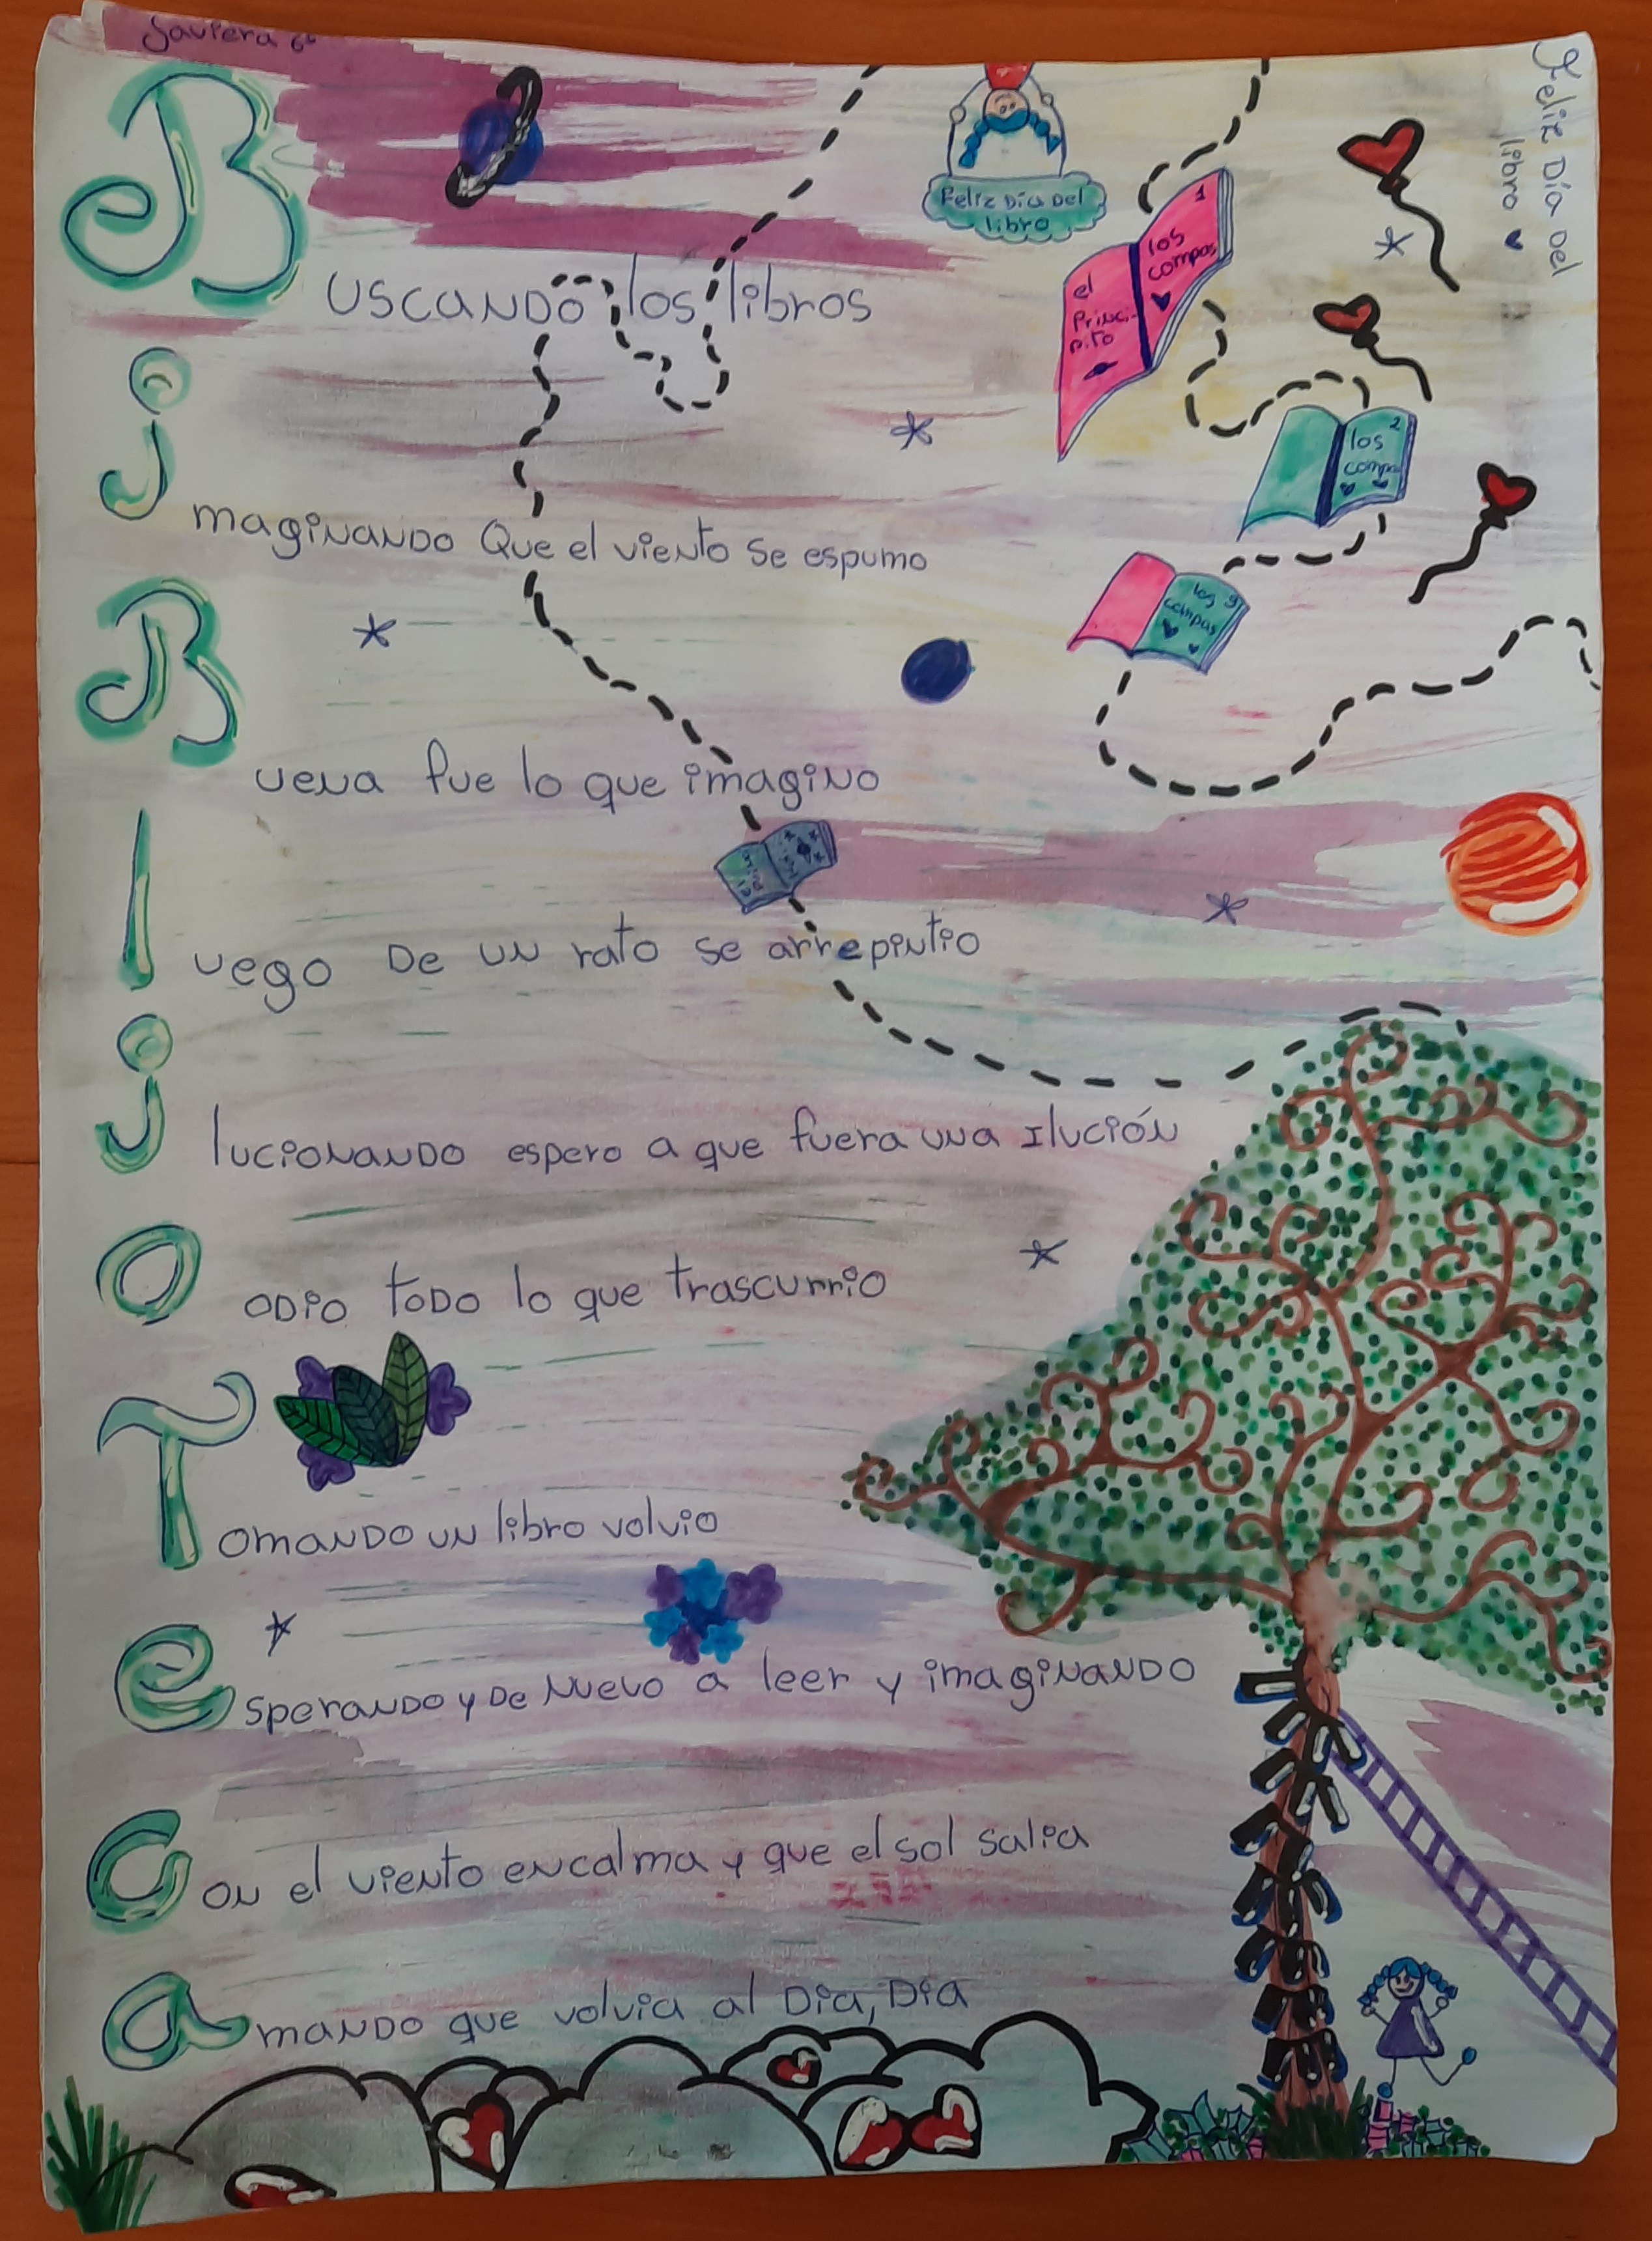 Javiera 6b
Feliz Día Del
libro
Feliz Día Del
libro
1
los
compas
el
Princi-
pito
2
los
compa
los 3
compas
Buscando los libros
imaginando Que el viento se espumo
Buena fue lo que imagino
luego De un rato se arrepintio
ilucionando espero a que fuera una Ilución
O odio todo lo que trascurrio
Tomando un libro volvio
esperando y De Nuevo a leer y imaginando
Con el viento en calma y que el sol salia
amando que volvia al Dia, Dia